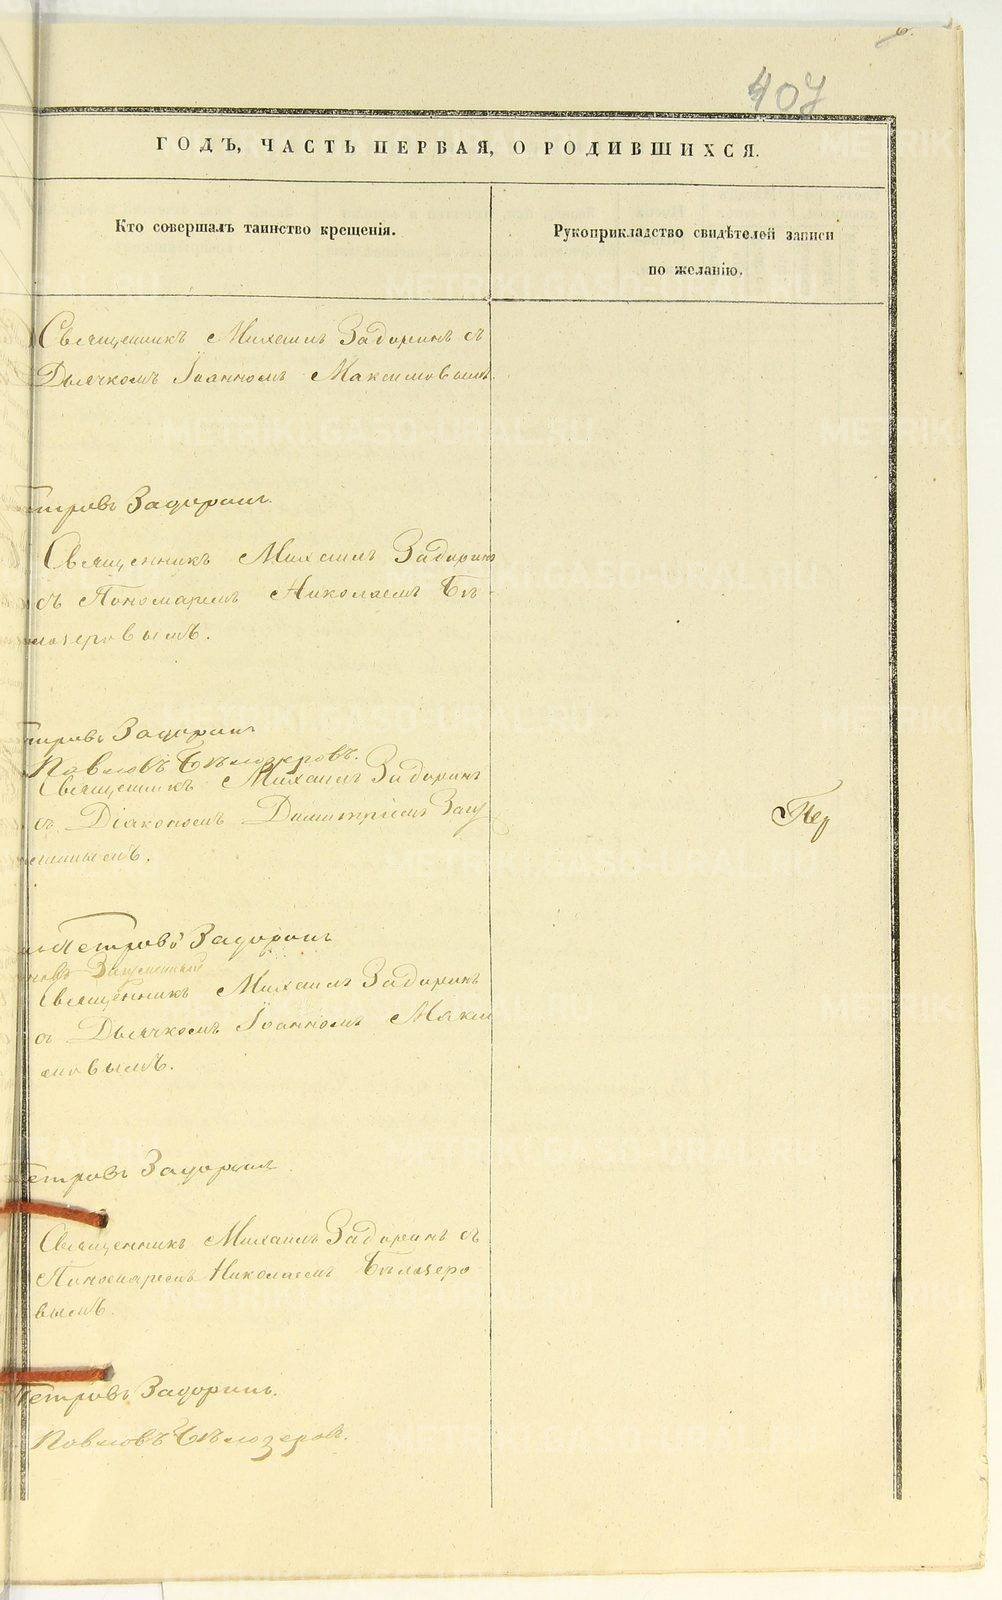 407
ГОДЪ, ЧАСТЬ ПЕРВАЯ, О РОДИВШИХСЯ.
Кто совершалъ таинство крещенія.
Рукоприкладство свидѣтелей записи
по желанію.
Священникъ Михаилъ Задоринъ съ
Дьячкомъ Іоанномъ Максимовымъ.
Петровъ Задоринъ.
Священникъ Михаилъ Задоринъ
съ Пономаремъ Николаемъ Бѣ-
лозеровымъ.
Петровъ Задоринъ
Павловъ Бѣлозеровъ.
Священникъ Михаилъ Задоринъ
съ Діакономъ Димитріемъ
Пер
Петровъ Задоринъ
Священникъ Михаилъ Задоринъ
съ Дьячкомъ Іоанномъ Макси
мовымъ.
Петровъ Задоринъ
Священникъ Михаилъ Задоринъ съ
Пономаремъ Николаемъ Бѣлозеро
вымъ.
Петровъ Задоринъ.
Павловъ Бѣлозеровъ.
METRIKI.GASO-URAL.RU